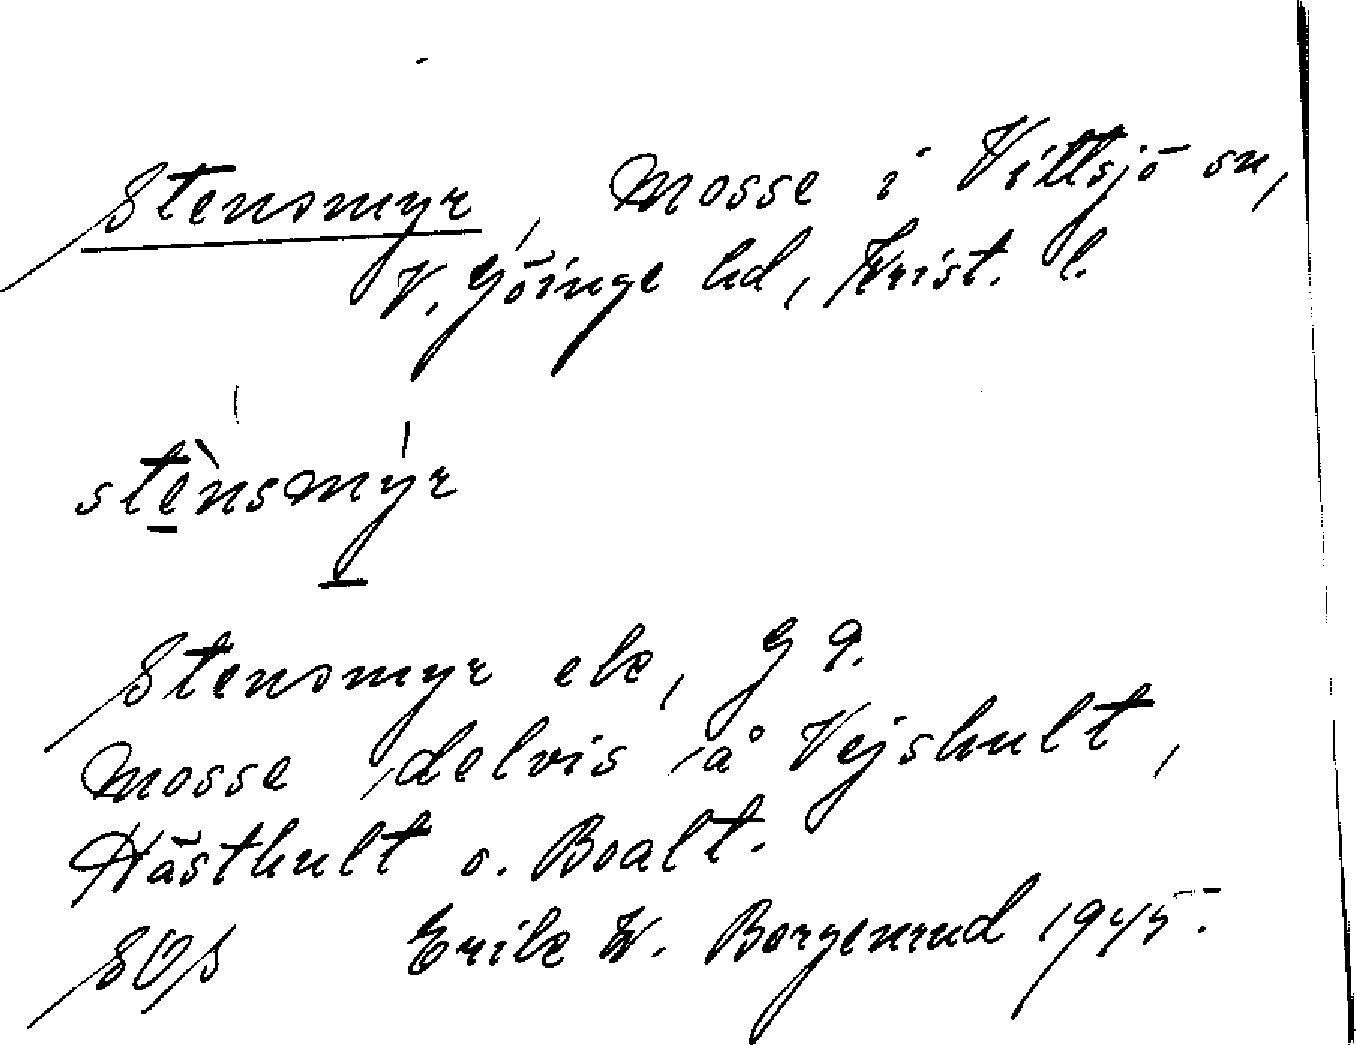 Stensmyr, Mosse i Vittsjö sn,
V. Göinge hd, Krist. l.
stènsmýr
Stensmyr ek, G 9.
Mosse delvis å Vejshult,
Hästhult o. Boalt.
Erik W. Bergenrud 1945.